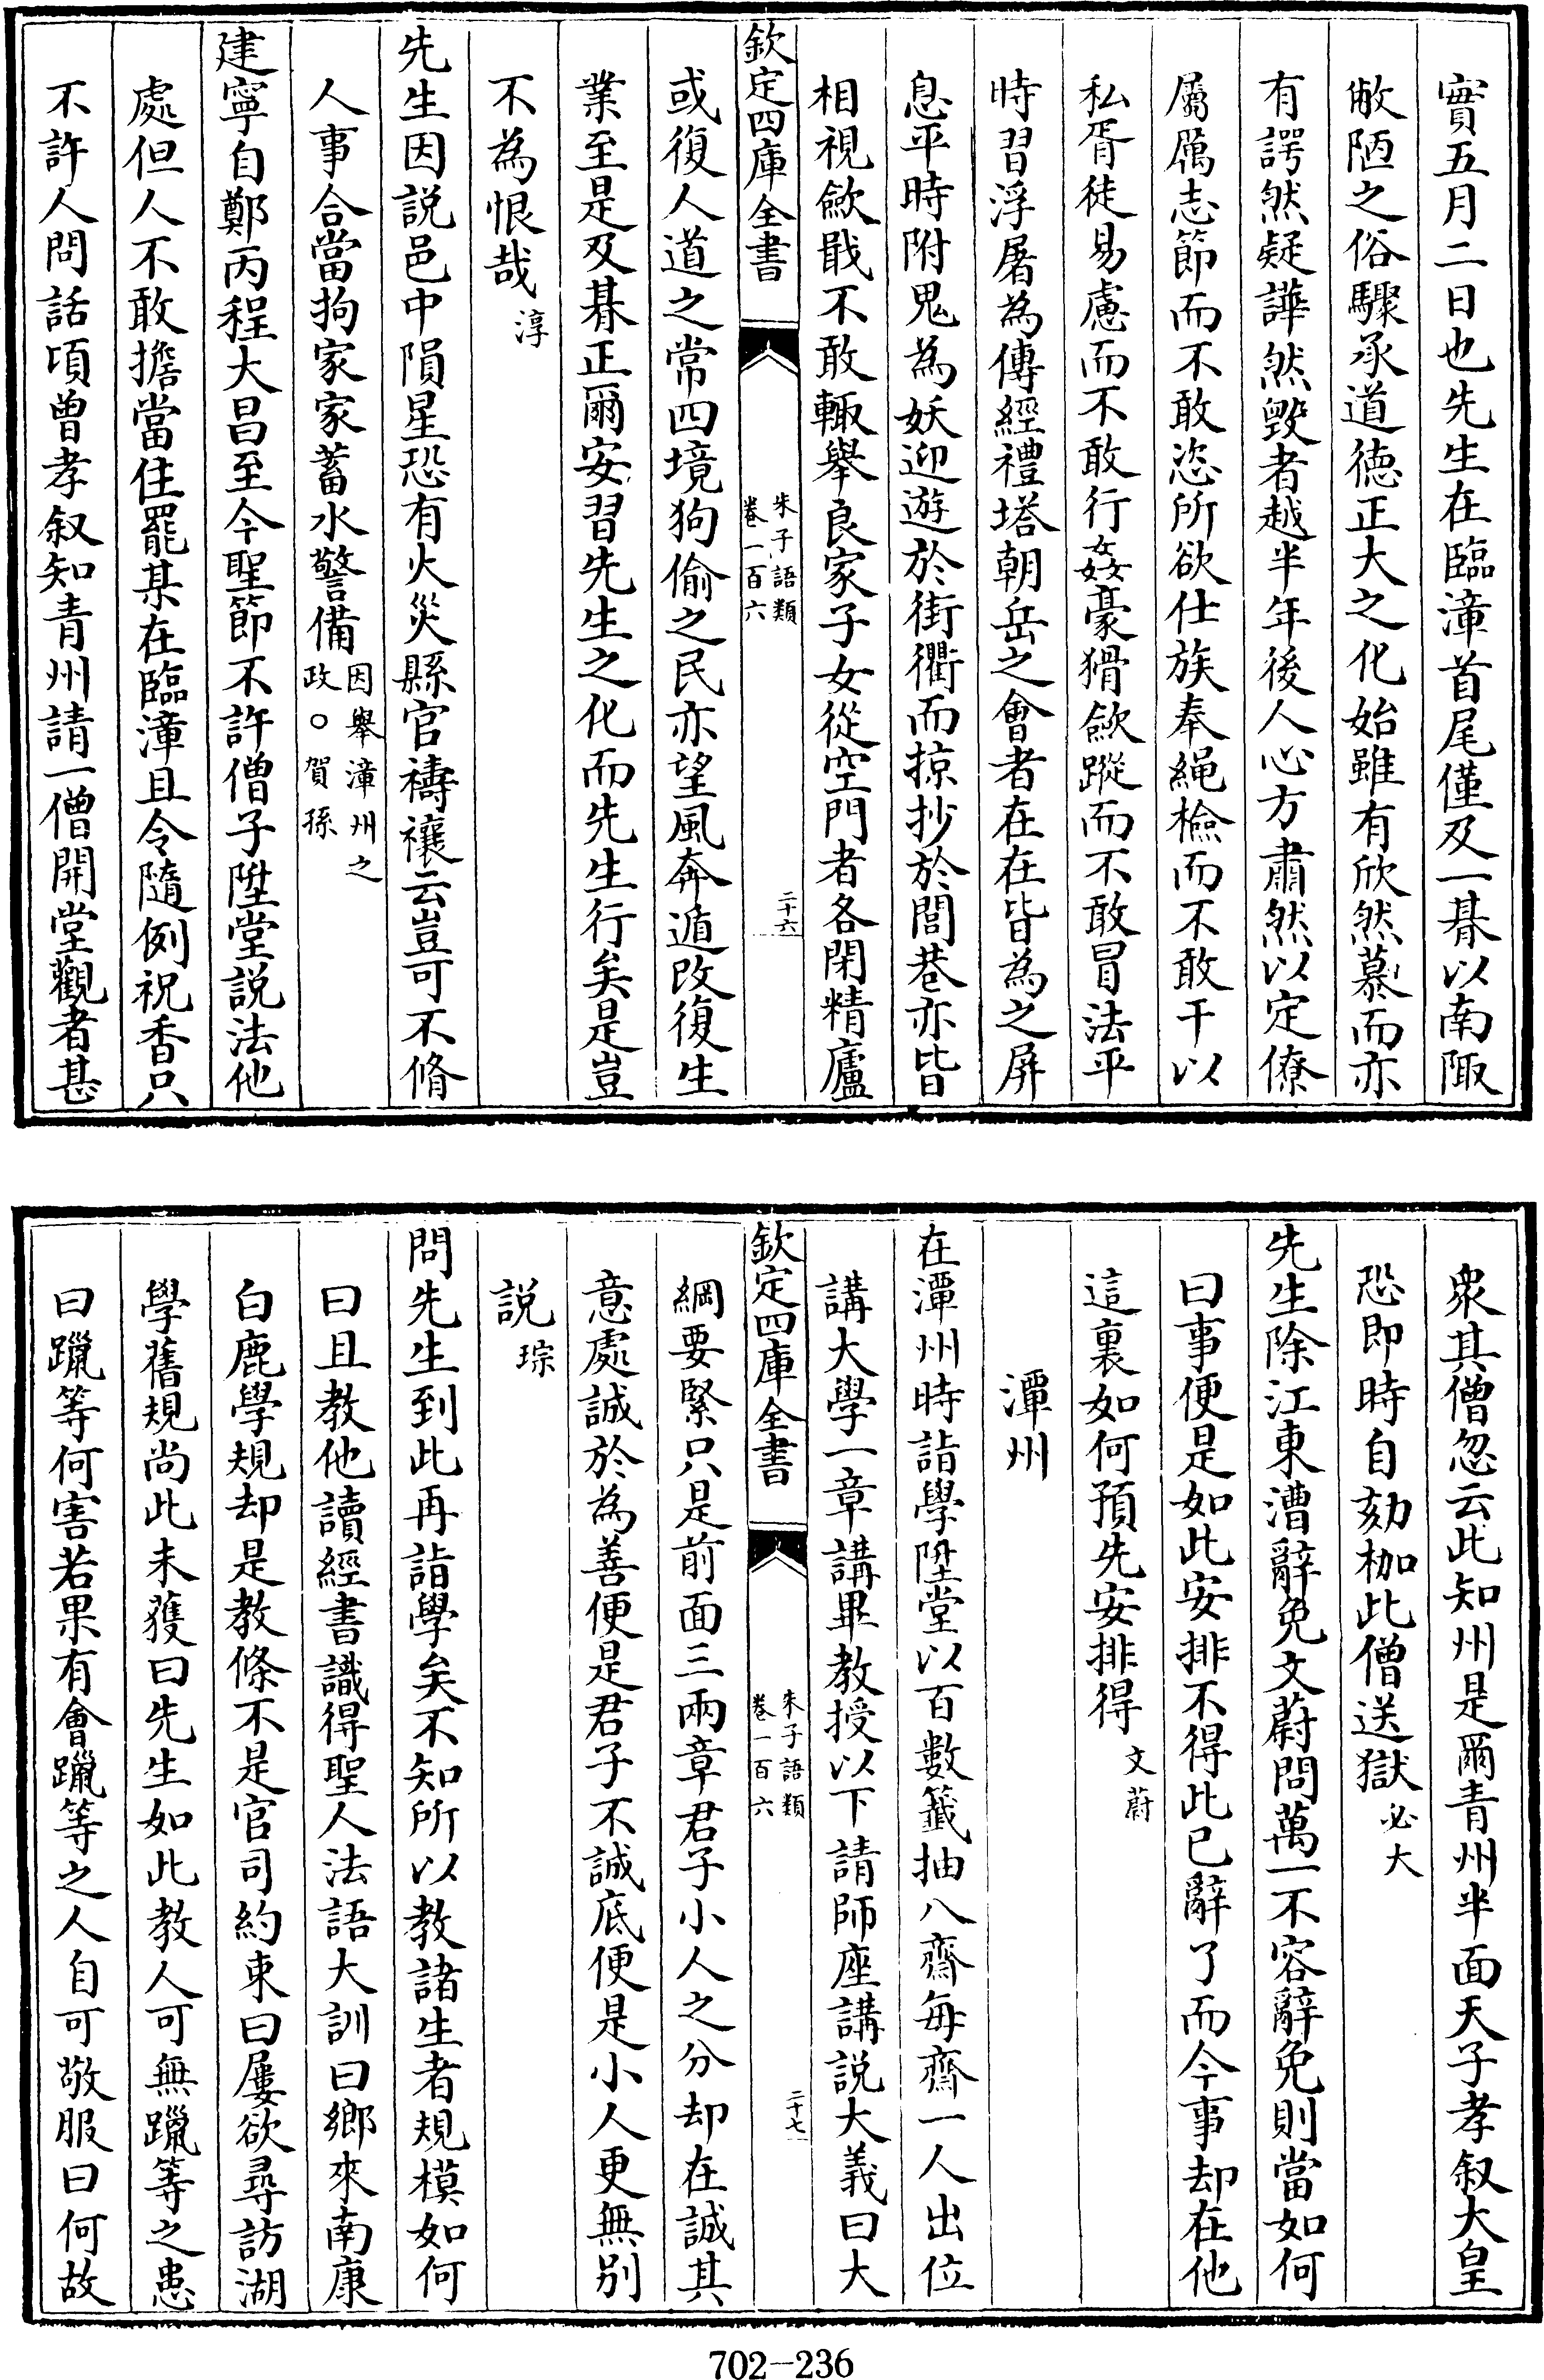 實五月二日也先生在臨漳首尾僅及一朞以南陬
敝陋之俗驟承道德正大之化始雖有欣然慕而亦
有諤然疑譁然毀者越半年後人心方肅然以定僚
屬厲志節而不敢恣所欲仕族奉繩檢而不敢干以
私胥徒易慮而不敢行姦豪猾歛蹤而不敢冒法平
時習浮屠為傳經禮塔朝岳之會者在在皆為之屏
息平時附鬼為妖迎遊於街衢而掠抄於閭巷亦皆
相視歛戢不敢輒舉良家子女從空門者各閉精廬
欽定四庫全書
朱子語類
卷一百六
二十六
或復人道之常四境狗偷之民亦望風奔遁改復生
業至是及朞正爾安習先生之化而先生行矣是豈
不為恨哉淳
先生因説邑中隕星恐有火災縣官禱禳云豈可不脩
人事合當拘家家蓄水警備因舉漳州之政○賀孫
建寧自鄭丙程大昌至今聖節不許僧子陞堂説法他
處但人不敢擔當住罷某在臨漳且令隨例祝香只
不許人問話頃曾孝叙知青州請一僧開堂觀者甚
衆其僧忽云此知州是爾青州半面天子孝叙大皇
恐即時自劾枷此僧送獄必大
先生除江東漕辭免文蔚問萬一不容辭免則當如何
曰事便是如此安排不得此已辭了而今事却在他
這裏如何預先安排得文蔚
潭州
在潭州時詣學陞堂以百數籤抽八齋每齋一人出位
講大學一章講畢教授以下請師座講説大義曰大
欽定四庫全書
朱子語類
卷一百六
二十七
綱要緊只是前面三兩章君子小人之分却在誠其
意處誠於為善便是君子不誠底便是小人更無别
説琮
問先生到此再詣學矣不知所以教諸生者規模如何
曰且教他讀經書識得聖人法語大訓曰鄉來南康
白鹿學規却是教條不是官司約束曰屢欲尋訪湖
學舊規尚此未獲曰先生如此教人可無躐等之患
曰躐等何害若果有會躐等之人自可敬服曰何故
702-236